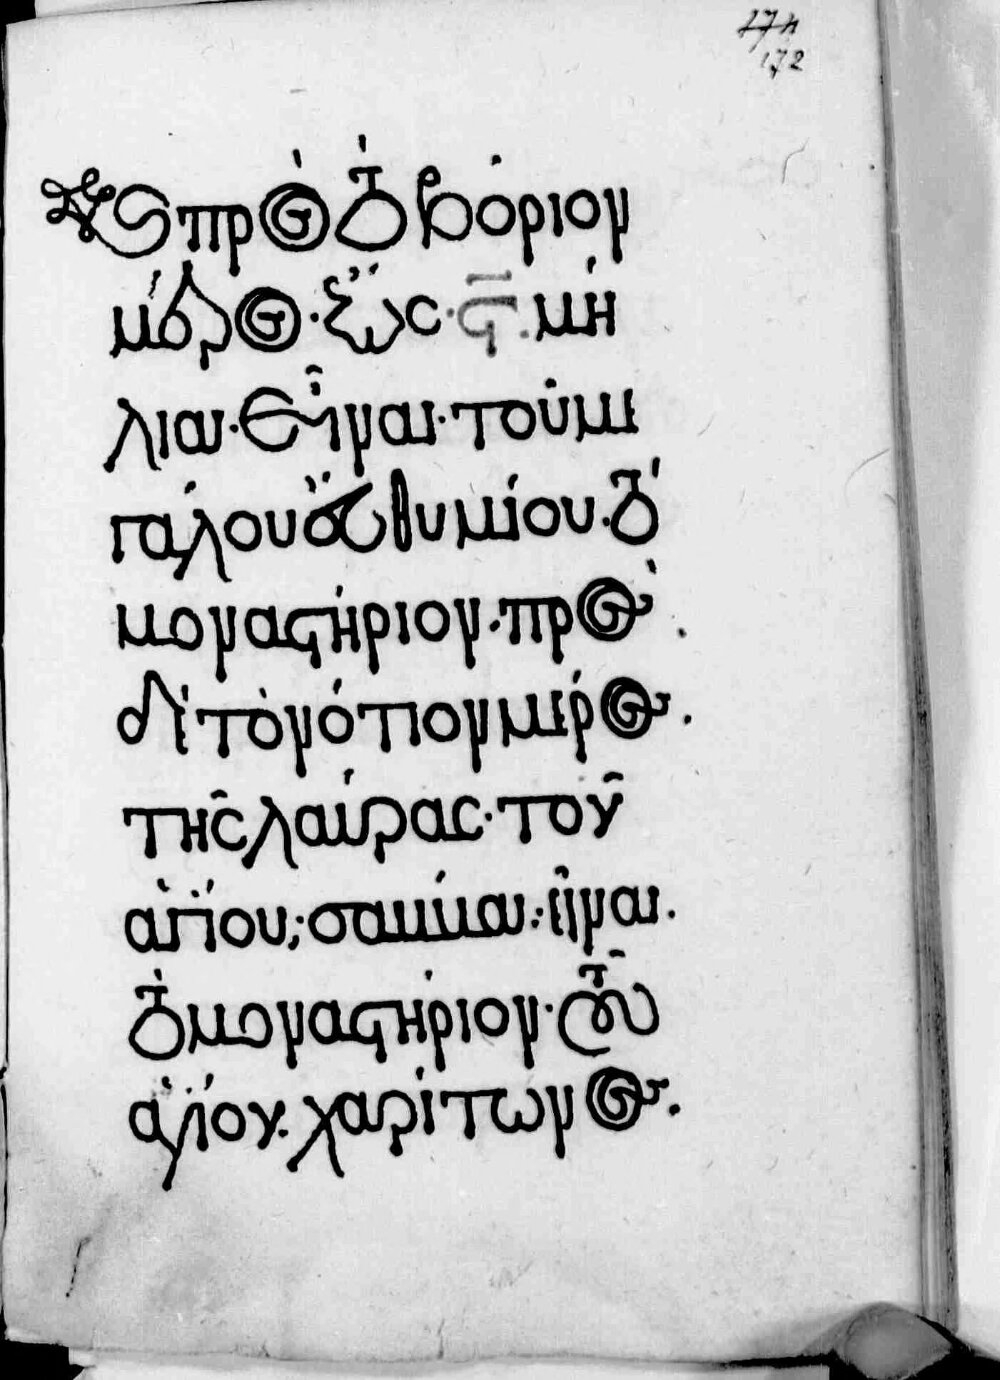 174
172
Καὶ πρὸς τὸ βόριον
μέρος· ἕως· ϛ̅· μή
λια· εἶναι· τοῦ με
γάλου εὐθυμίου· τὸ
μοναστήριον· πρὸς
δὲ τὸ νότιον μέρος.
τῆς λαύρας· τοῦ
ἁγίου; σάββα· εἶναι.
τὸ μοναστήριον· τοῦ
ἁγίου· χαρίτωνος.